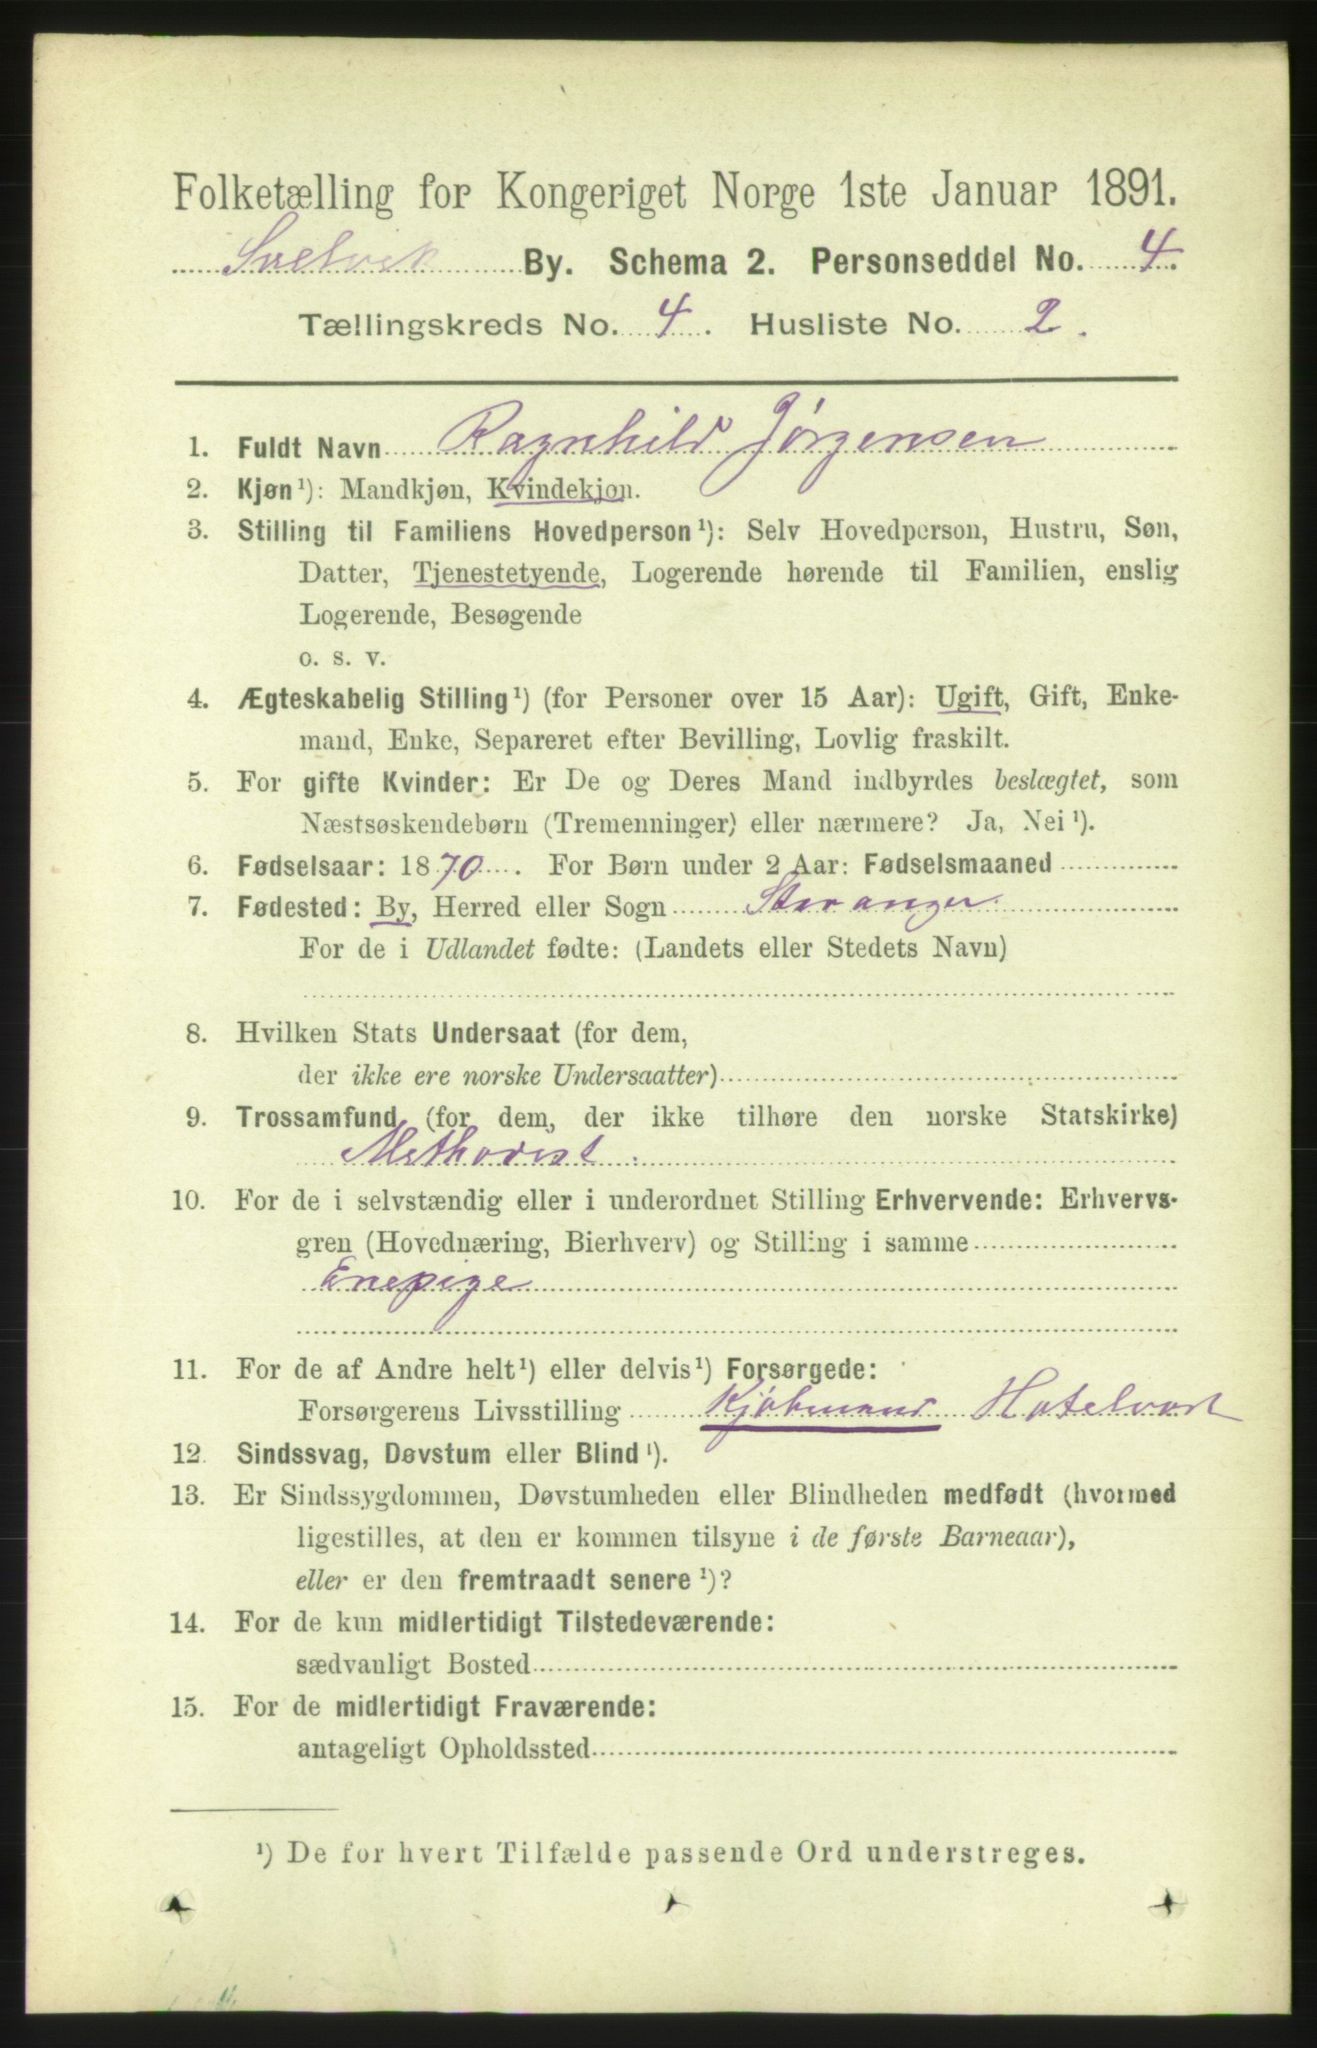 Folketælling for Kongeriget Norge 1ste Januar 1891.
Svelvik By. Schema 2. Personseddel No. 4.
Tællingskreds No. 4. Husliste No. 2.
1. Fuldt Navn Ragnhild Jørgensen
2. Kjøn¹): Mandkjøn, Kvindekjøn.
3. Stilling til Familiens Hovedperson¹): Selv Hovedperson, Hustru, Søn,
Datter, Tjenestetyende, Logerende hørende til Familien, enslig
Logerende, Besøgende
o. s. v.
4. Ægteskabelig Stilling¹) (for Personer over 15 Aar): Ugift, Gift, Enke-
mand, Enke, Separeret efter Bevilling, Lovlig fraskilt.
5. For gifte Kvinder: Er De og Deres Mand indbyrdes beslægtet, som
Næstsøskendebørn (Tremenninger) eller nærmere? Ja, Nei¹).
6. Fødselsaar: 1870. For Børn under 2 Aar: Fødselsmaaned
7. Fødested: By, Herred eller Sogn Stavanger.
For de i Udlandet fødte: (Landets eller Stedets Navn)
8. Hvilken Stats Undersaat (for dem,
der ikke ere norske Undersaatter)
9. Trossamfund (for dem, der ikke tilhøre den norske Statskirke)
Methodist.
10. For de i selvstændig eller i underordnet Stilling Erhvervende: Erhvervs-
gren (Hovednæring, Bierhverv) og Stilling i samme
Enepige
11. For de af Andre helt¹) eller delvis¹) Forsørgede:
Forsørgerens Livsstilling Kjøbmand Hotelvært
12. Sindssvag, Døvstum eller Blind¹).
13. Er Sindssygdommen, Døvstumheden eller Blindheden medfødt (hvormed
ligestilles, at den er kommen tilsyne i de første Barneaar),
eller er den fremtraadt senere¹)?
14. For de kun midlertidigt Tilstedeværende:
sædvanligt Bosted
15. For de midlertidigt Fraværende:
antageligt Opholdssted
¹) De for hvert Tilfælde passende Ord understreges.